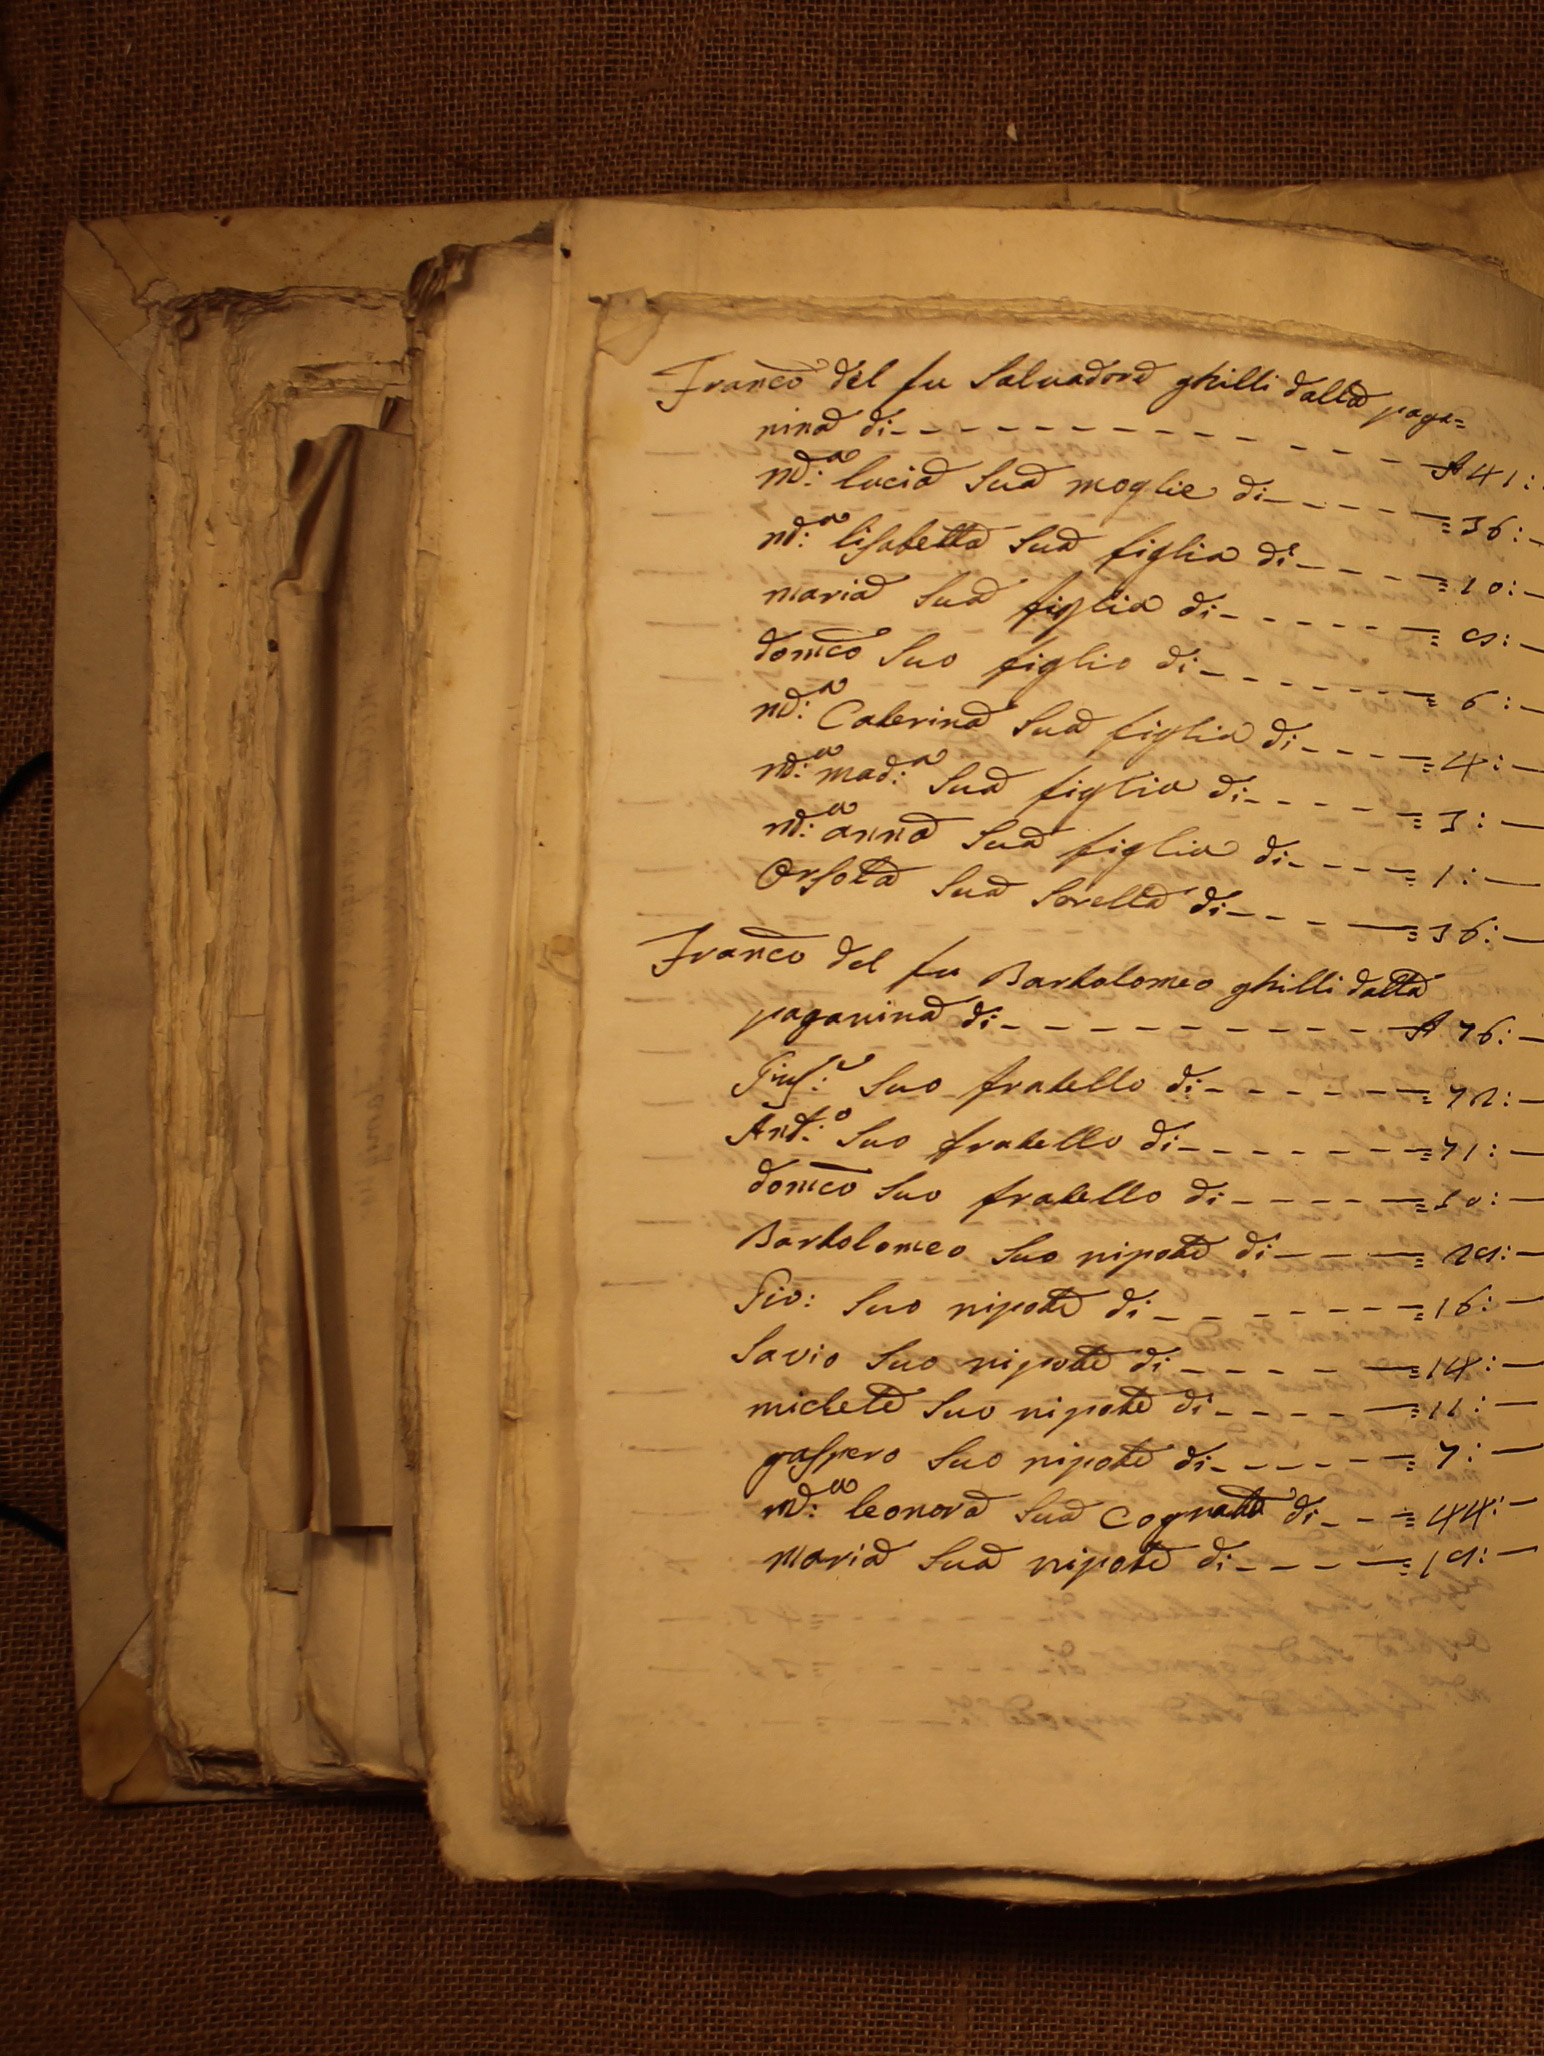 Franco del fu Salvadore ghilli dalla paga=
nina di - - - - - - - - - - - - - A 41:
Md:a lucia Sua moglie di - - - - = 36: -
Md:a lisabetta Sua figlia di - - - - = 10: -
maria Sua figlia di - - - - - = 9: -
domco Suo figlio di - - - - - = 6: -
Md:a Caterina Sua figlia di - - - - = 4: -
Md:a mad:a Sua figlia di - - - - = 3: -
Md:a anna Sua figlia di - - - - = 1: -
Orsola Sua Sorella di - - - - = 36: -
Franco del fu Bartolomeo ghilli dalla
paganina di - - - - - - - - - - A 76: -
Gius:e Suo fratello di - - - - - = 72: -
Ant:o Suo fratello di - - - - - = 71: -
domco Suo fratello di - - - - = 50: -
Bartolomeo Suo nipote di - - - = 29: -
Gio: Suo nipote di - - - - - = 16: -
Savio Suo nipote di - - - - = 14: -
michele Suo nipote di - - - - = 11: -
gaspero Suo nipote di - - - - - = 7: -
Md:a leonora Sua Cognata di - - = 44: -
maria Sua nipote di - - - - = 19: -